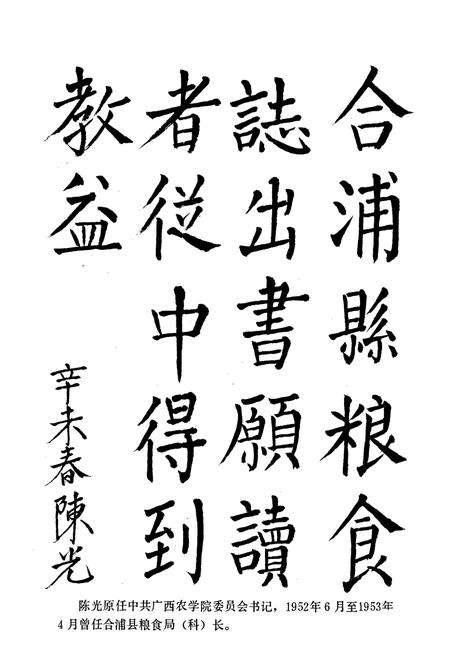 合浦縣粮食
誌出書願讀
者從中得到
教益
辛未春陳光
陈光原任中共广西农学院委员会书记，1952年6月至1953年
4月曾任合浦县粮食局（科）长。